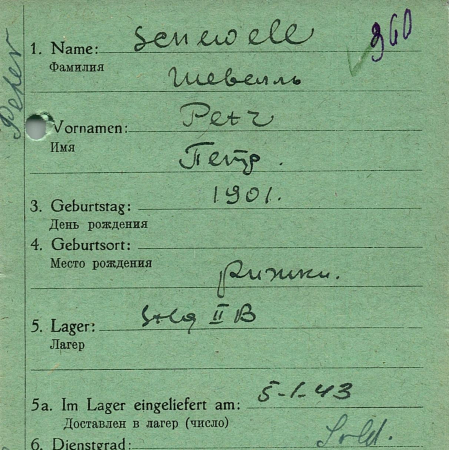 Peter
960
1. Name: Schewell
Фамилия
Шевелль
Vornamen: Petr
Имя
Петр.
3. Geburtstag: 1901.
День рождения
4. Geburtsort:
Место рождения
5. Lager: Stlg II B
Лагер
5a. Im Lager eingeliefert am: 5-1-43
Доставлен в лагер (число)
6. Dienstgrad: Sold.